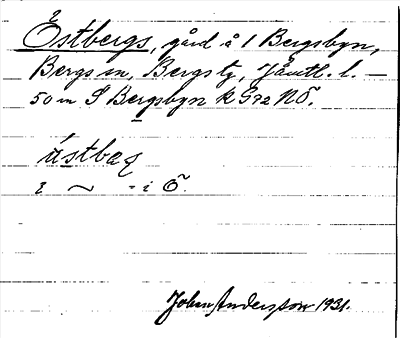 Östbergs, gård å 1 Bergsbyn,
Bergs sn, Bergs tg, Jämtl. l. —
50 m S Bergsbyn k G 92 NÖ.
östbaɋ
i ~ - i Ö.
Johan Andersson 1931.